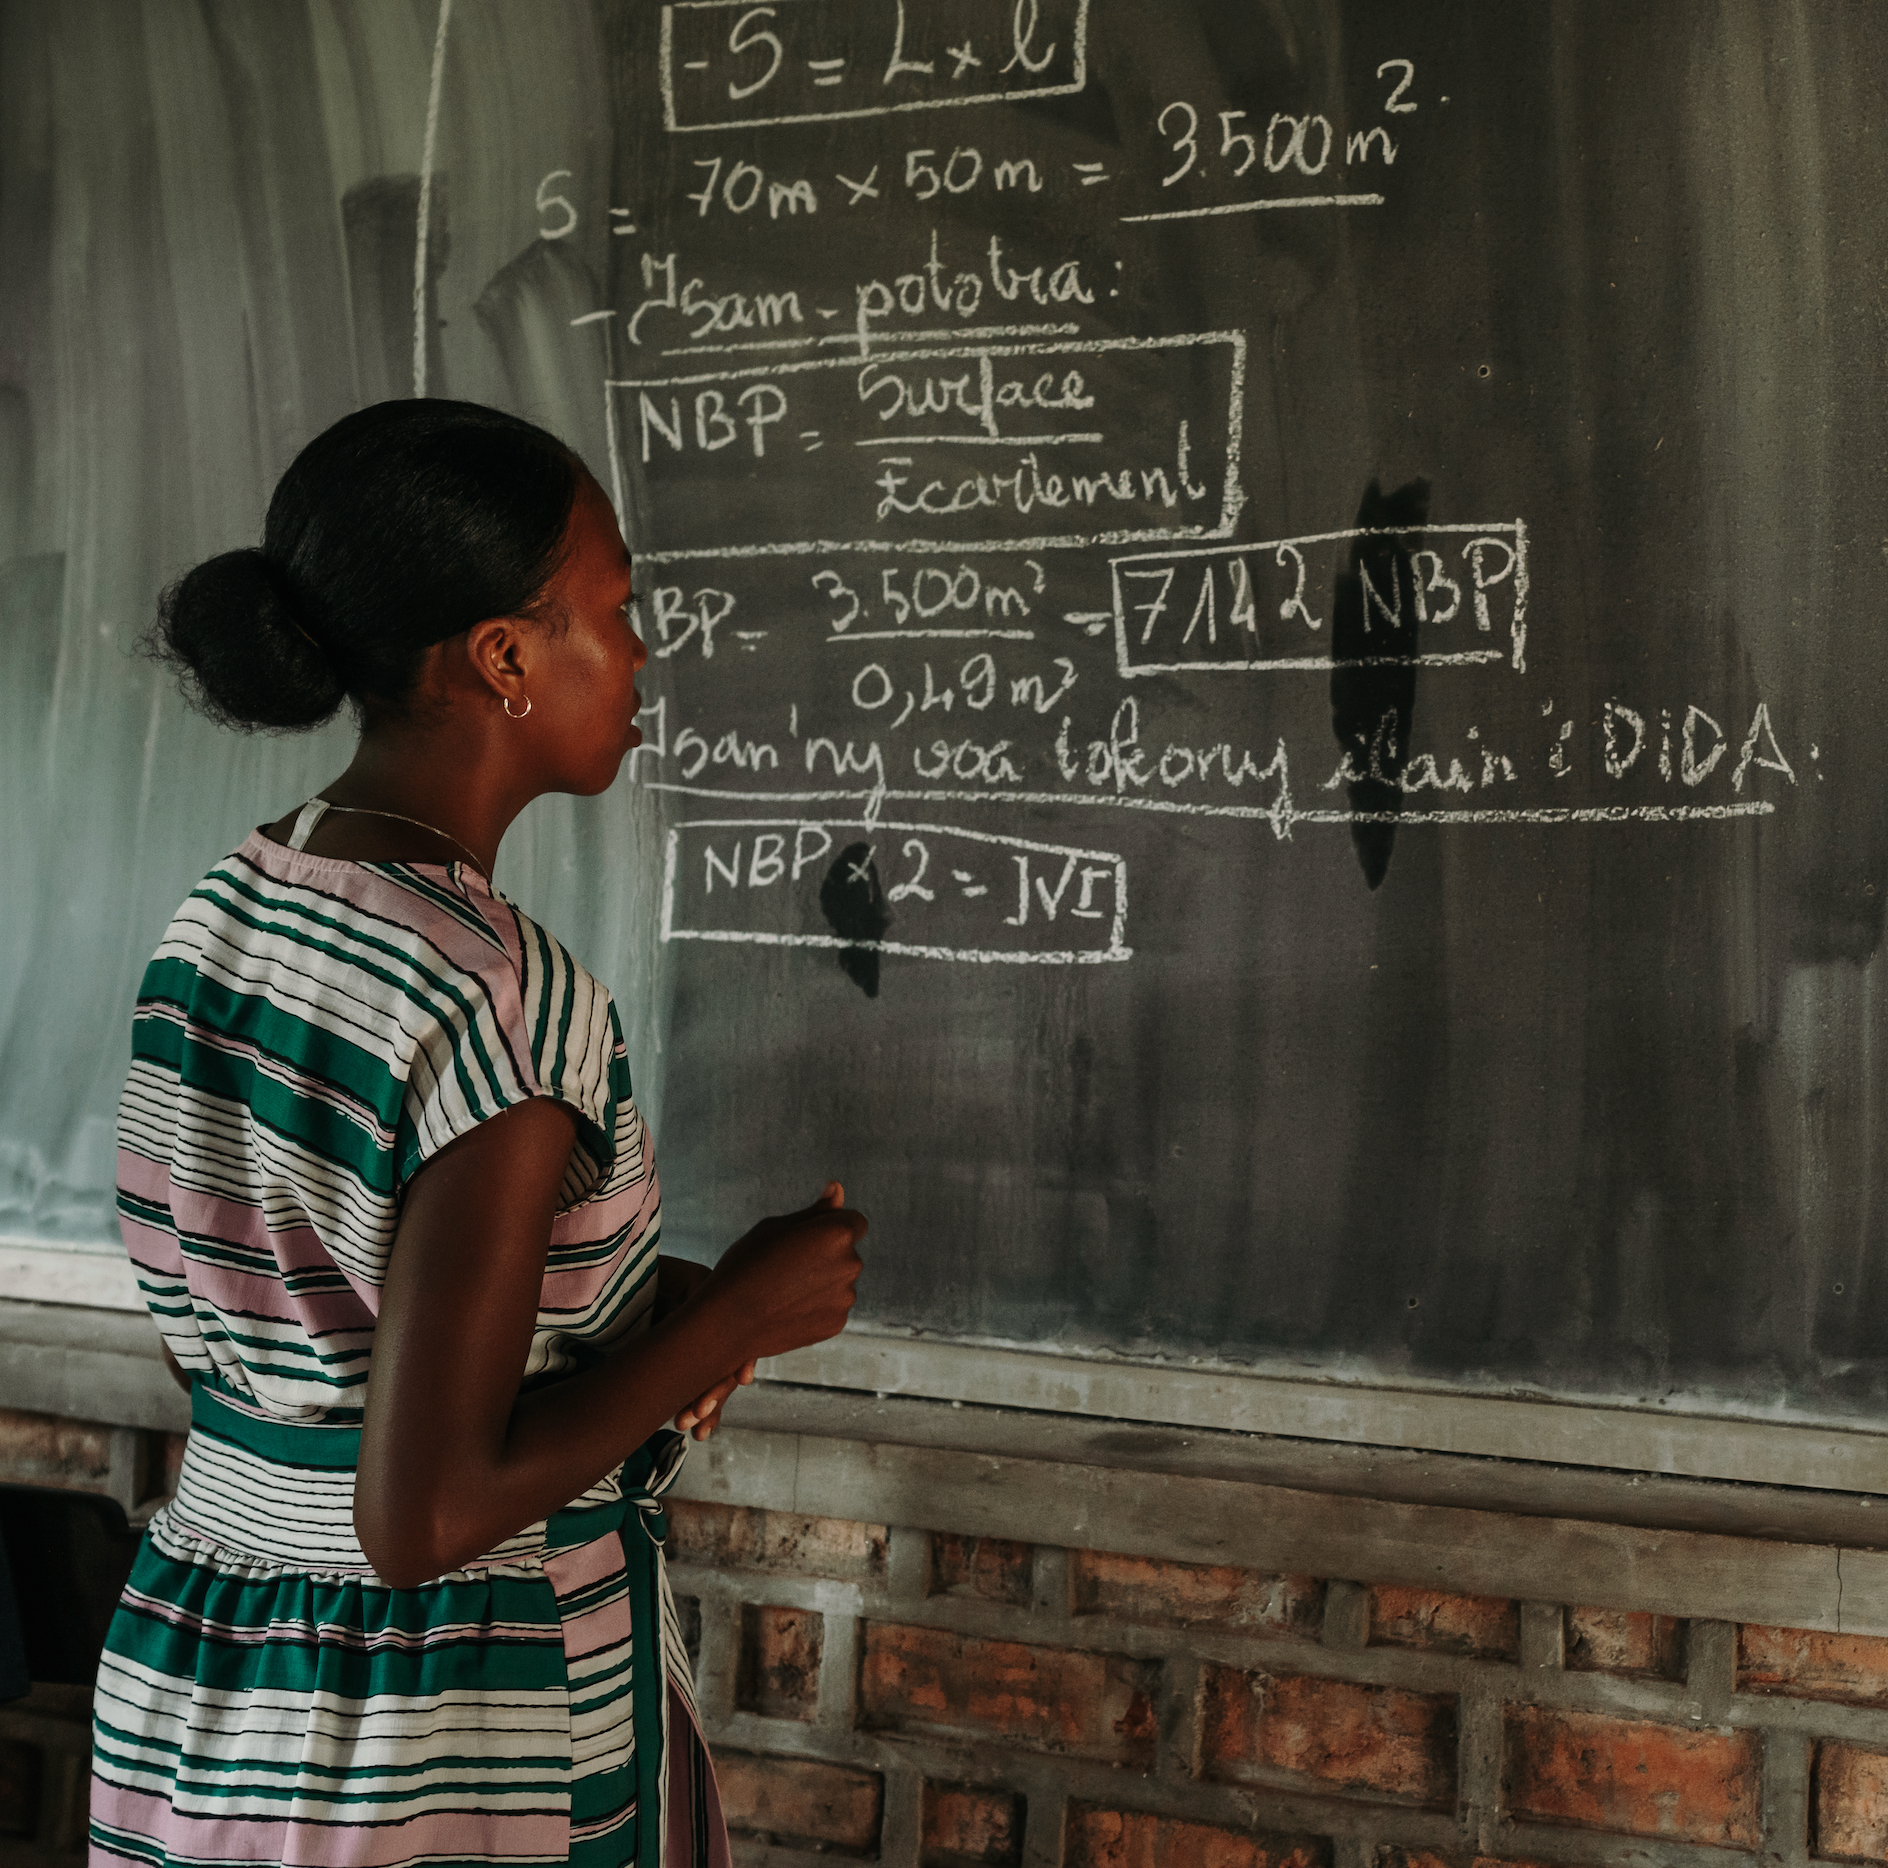 - S = L x l
S = 70m x 50m = 3.500m².
- Isam-pototra:
NBP = Surface
Ecartement
BP = 3.500m² = 7142 NBP
0,49m²
Isan'ny voa tokony ilain'i DIDA:
NBP x 2 = NVI